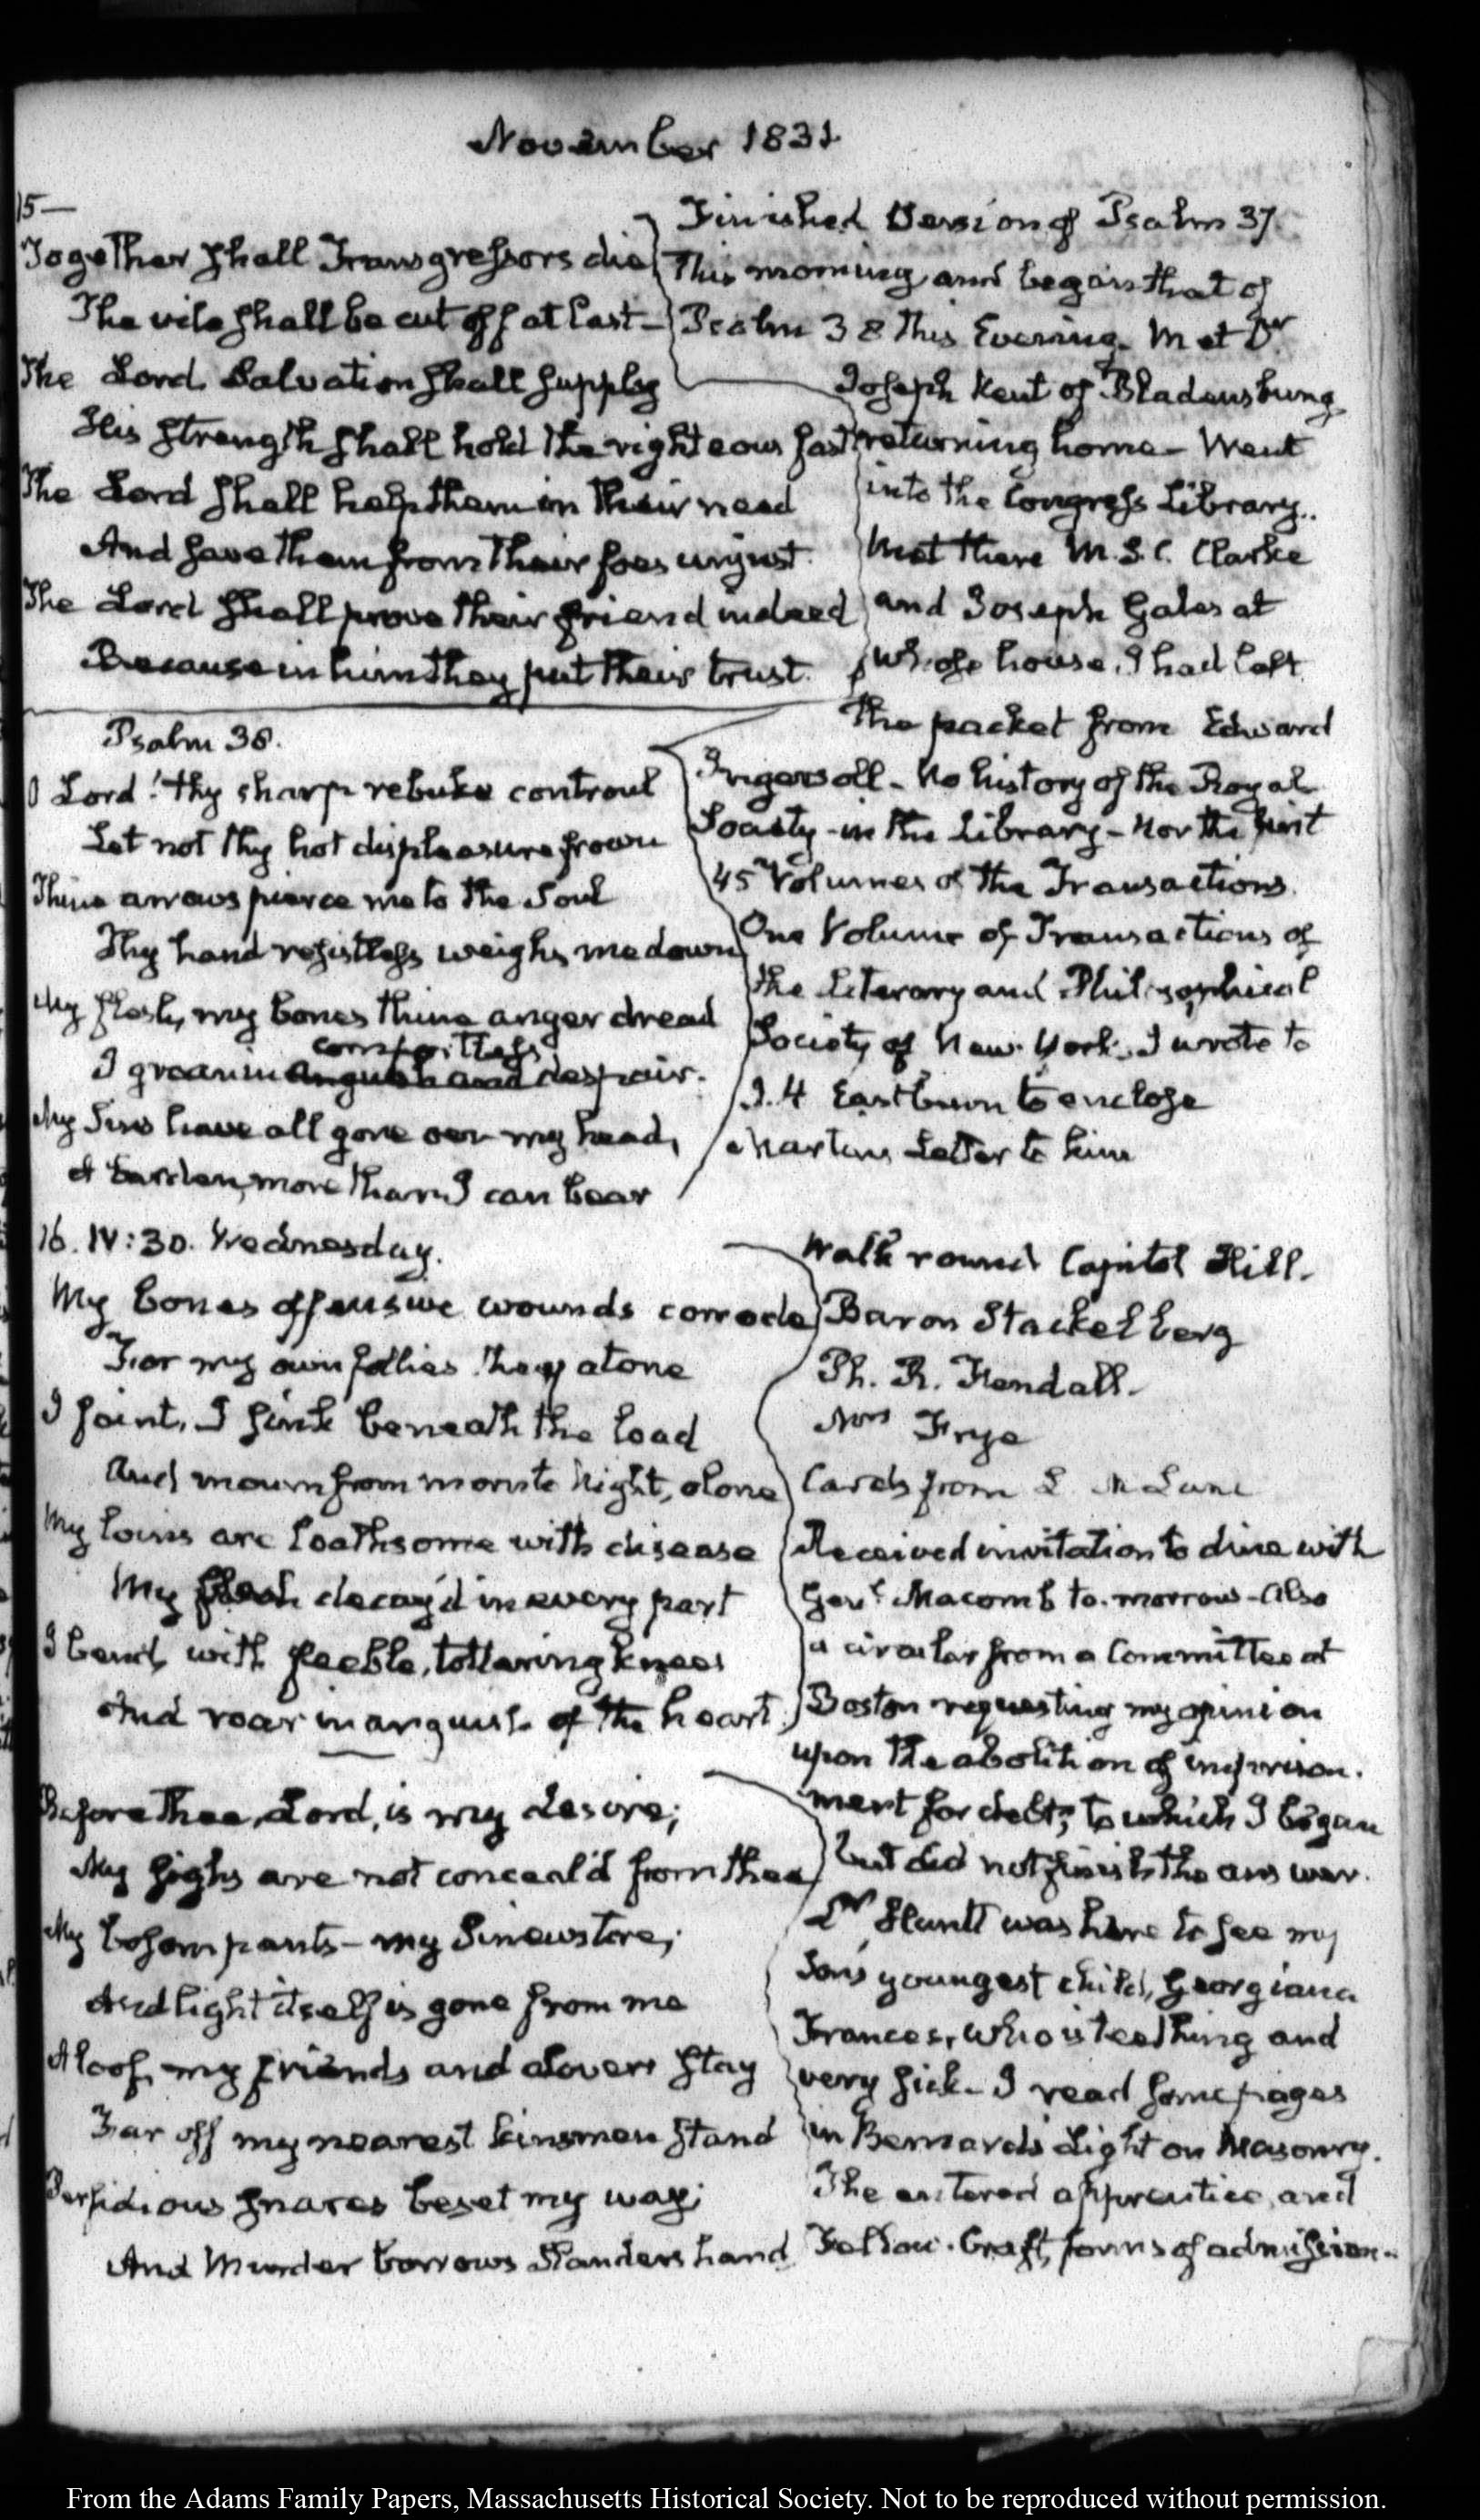 November 1831
15—
Together shall Transgressors die
The vile shall be cut off at last—
The Lord Salvation shall supply
His strength shall hold the righteous fast
The Lord shall help them in their need
And save them from their foes unjust.
The Lord shall prove their friend indeed
Because in him they put their trust.
Finished Version of Psalm 37.
this morning and began that of
Psalm 38 this Evening. Met Dr
Joseph Kent of Bladensburg
returning home— Went
into the Congress Library..
Met there M. S. C. Clarke
and Joseph Gales at
whose house I had left
the packet from Edward
Ingersoll— No history of the Royal
Society—in the Library—Nor the first
45 Volumes of the Transactions.
One Volume of Transactions of
the Literary and Philosophical
Society of New-York. I wrote to
Eastburn to enclose
Letter to him
Psalm 38.
O Lord! thy sharp rebuke controul
Let not thy hot displeasure frown
Thine arrows pierce me to the Soul
Thy hand resistless weighs me down
My flesh, my bones thine anger dread
comfortless
I groan in anguish and despair.
My Sins have all gone oer my head,
A burden, more than I can bear
16. IV:30. Wednesday.
My bones offensive wounds corrode
For my own follies they atone
I faint, I sink beneath the load
And mourn from morn to night, alone
My loins are loathsome with disease
My flesh decay'd in every part
I bend with feeble, tottering knees
And roar in anguish of the heart.
Before thee, Lord, is my desire;
My sighs are not conceal'd from thee
My bosom pants—my Sinews tire;
And light itself is gone from me
Aloof, my friends and lovers stay
Far off my nearest kinsmen stand
Perfidious snares beset my way;
And Murder borrows Slanders hand
Walk round Capitol Hill.
Baron Stackelberg
Ph. R. Fendall.
Mrs Frye
Cards from L. McLane
Received invitation to dine with
Genl. Macomb to-morrow—Also
a circular from a Committee at
Boston requesting my opinion
upon the abolition of imprison-
ment for debt; to which I began
but did not finish the answer.
Dr Huntt was here to see my
Son's youngest child, Georgiana
Frances, who is teething and
very sick— I read some pages
in Bernard's Light on Masonry.
The entered apprentice, and
Fellow-Craft, forms of admission.
From the Adams Family Papers, Massachusetts Historical Society. Not to be reproduced without permission.